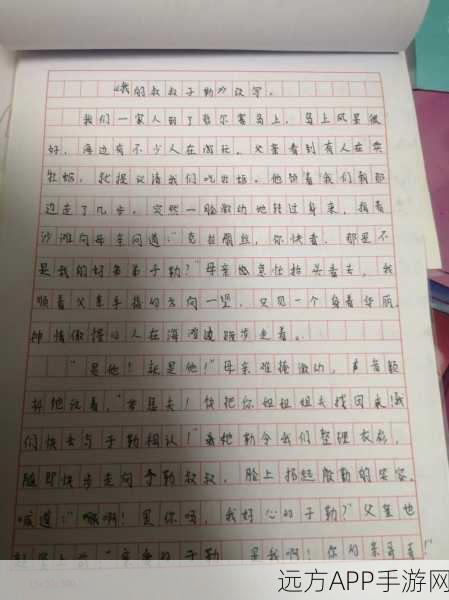 《我的叔叔于勒》改写。
我们一家人到了哲尔赛岛上，岛上风景很
好，海边有不少人在游玩。父亲看到有人在卖
牡蛎，就提议请我们吃牡蛎。他带着我们朝那
边走了几步，突然一脸激动地转过身来，指着
沙滩向母亲问道："克拉丽丝，你快看，那是不
是我的好弟弟于勒？"母亲急忙抬头看去，我
顺着父亲手指的方向一望，只见一个身着华丽、
神情傲慢的人在海滩边踱步走着。
"是他！就是他！"母亲难掩激动，声音颤
抖地说着，"若瑟夫！快把你姐姐姐夫找回来！我
们快去与于勒相认！"母亲勒令我们整理衣衫，
随即快步走向于勒叔叔，脸上扬起殷勤的笑容，
喊道："啊！是你吗，我好心的于勒？"父亲也
赶忙上前："亲爱的于勒，是我啊！你的亲哥哥！"
15×20=300
远方APP手游网